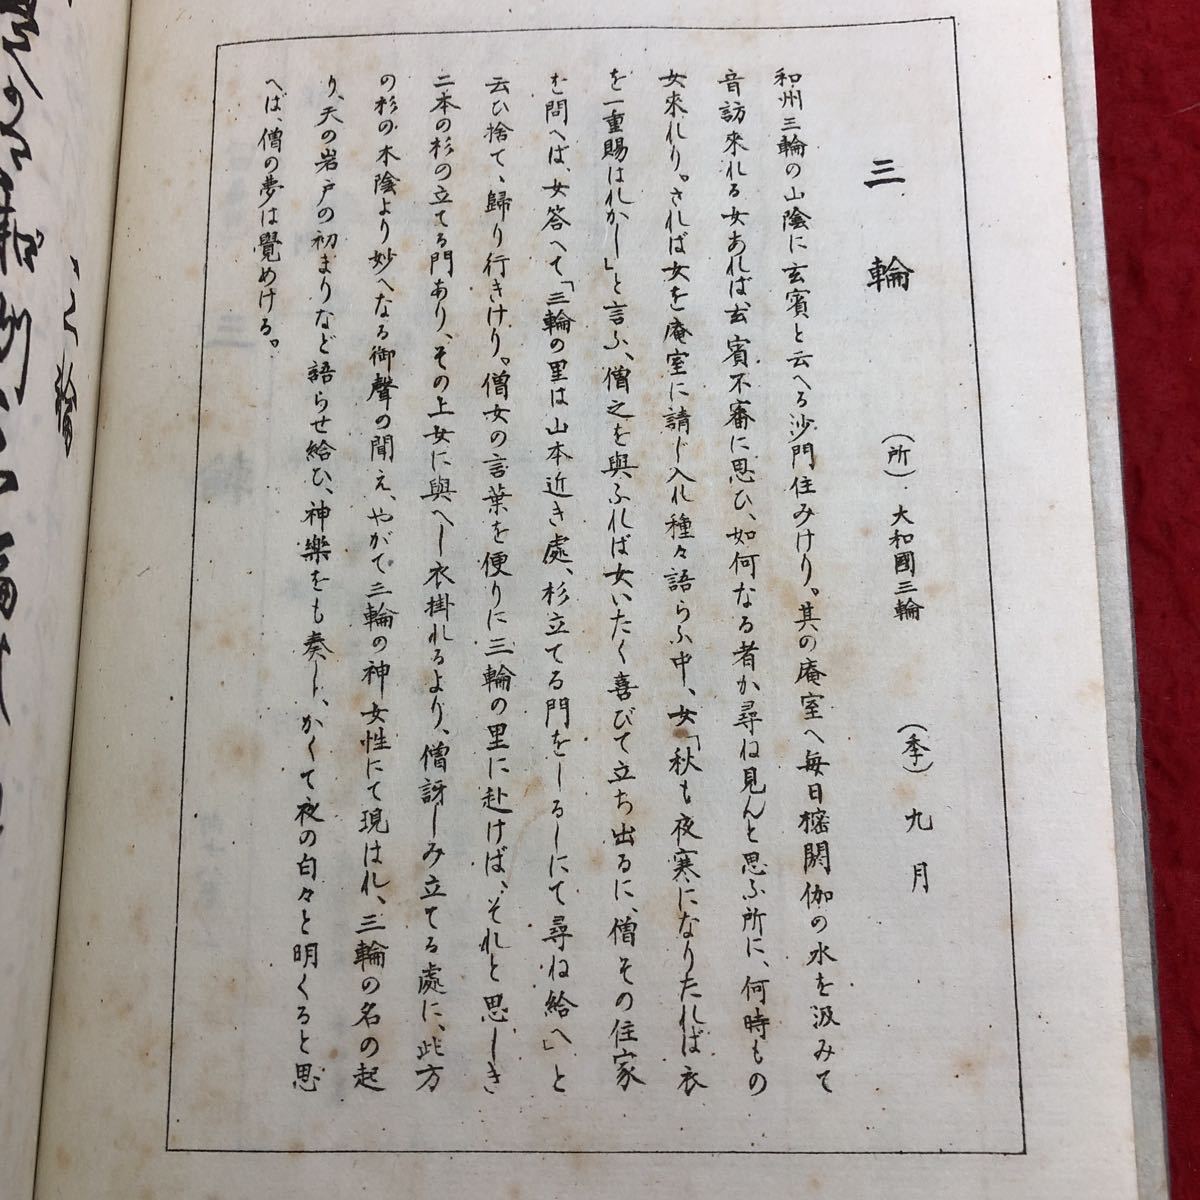 三輪
(所) 大和國三輪 (季) 九月
和州三輪の山陰に玄賓と云へる沙門住みけり。其の庵室へ毎日樒閼伽の水を汲みて
音訪來れる女あれば玄賓不審に思ひ、如何なる者か尋ね見んと思ふ所に、何時もの
女來れり。されば女を庵室に請じ入れ種々語らふ中、女「秋も夜寒になりたれば衣
を一重賜はれかし」と言ふ、僧之を與ふれば女いたく喜びて立ち出るに、僧その住家
を問へば、女答へて「三輪の里は山本近き處、杉立てる門をしるしにて尋ね給へ」と
云ひ捨て、歸り行きけり。僧女の言葉を便りに三輪の里に赴けば、それと思しき
二本の杉の立てる門あり、その上女に與へし衣掛れるより、僧訝しみ立てる處に、此方
の杉の木陰より妙へなる御聲の聞え、やがて三輪の神女性にて現はれ、三輪の名の起
り、天の岩戸の初まりなど語らせ給ひ、神樂をも奏し、かくて夜の白々と明くると思
へば、僧の夢は覺めける。
三輪